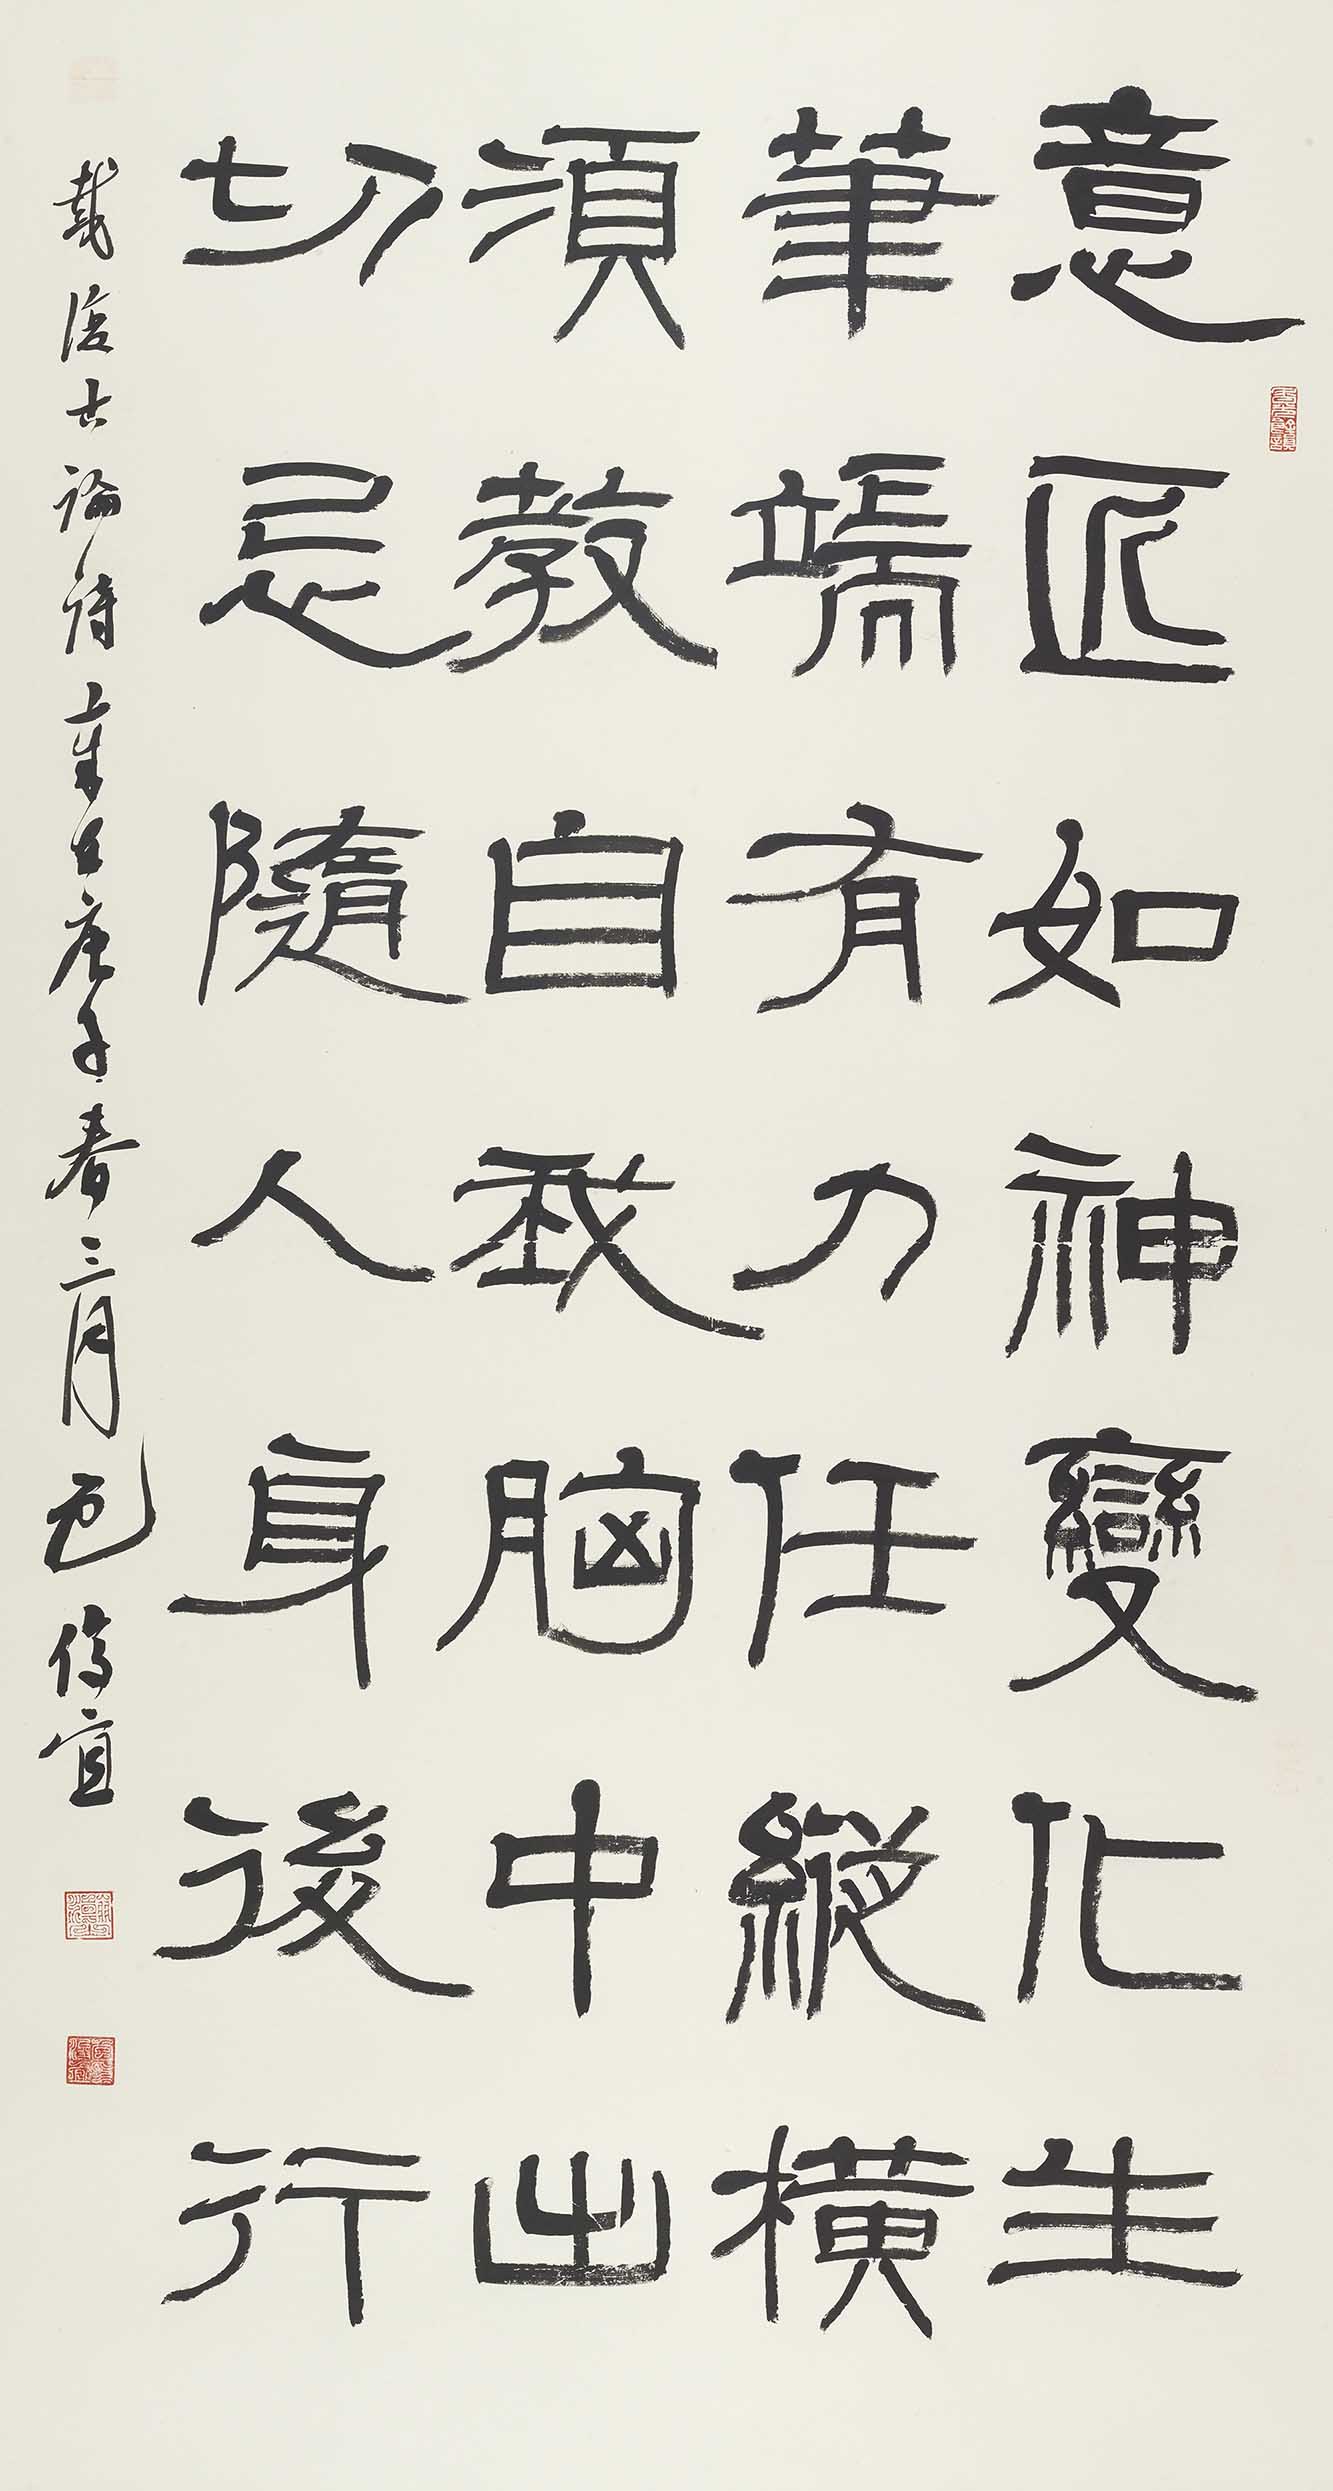 意匠如神變化生
筆端有力任縱橫
須教自我胸中出
切忌隨人身後行
戴復古論詩 庚子春三月 宜